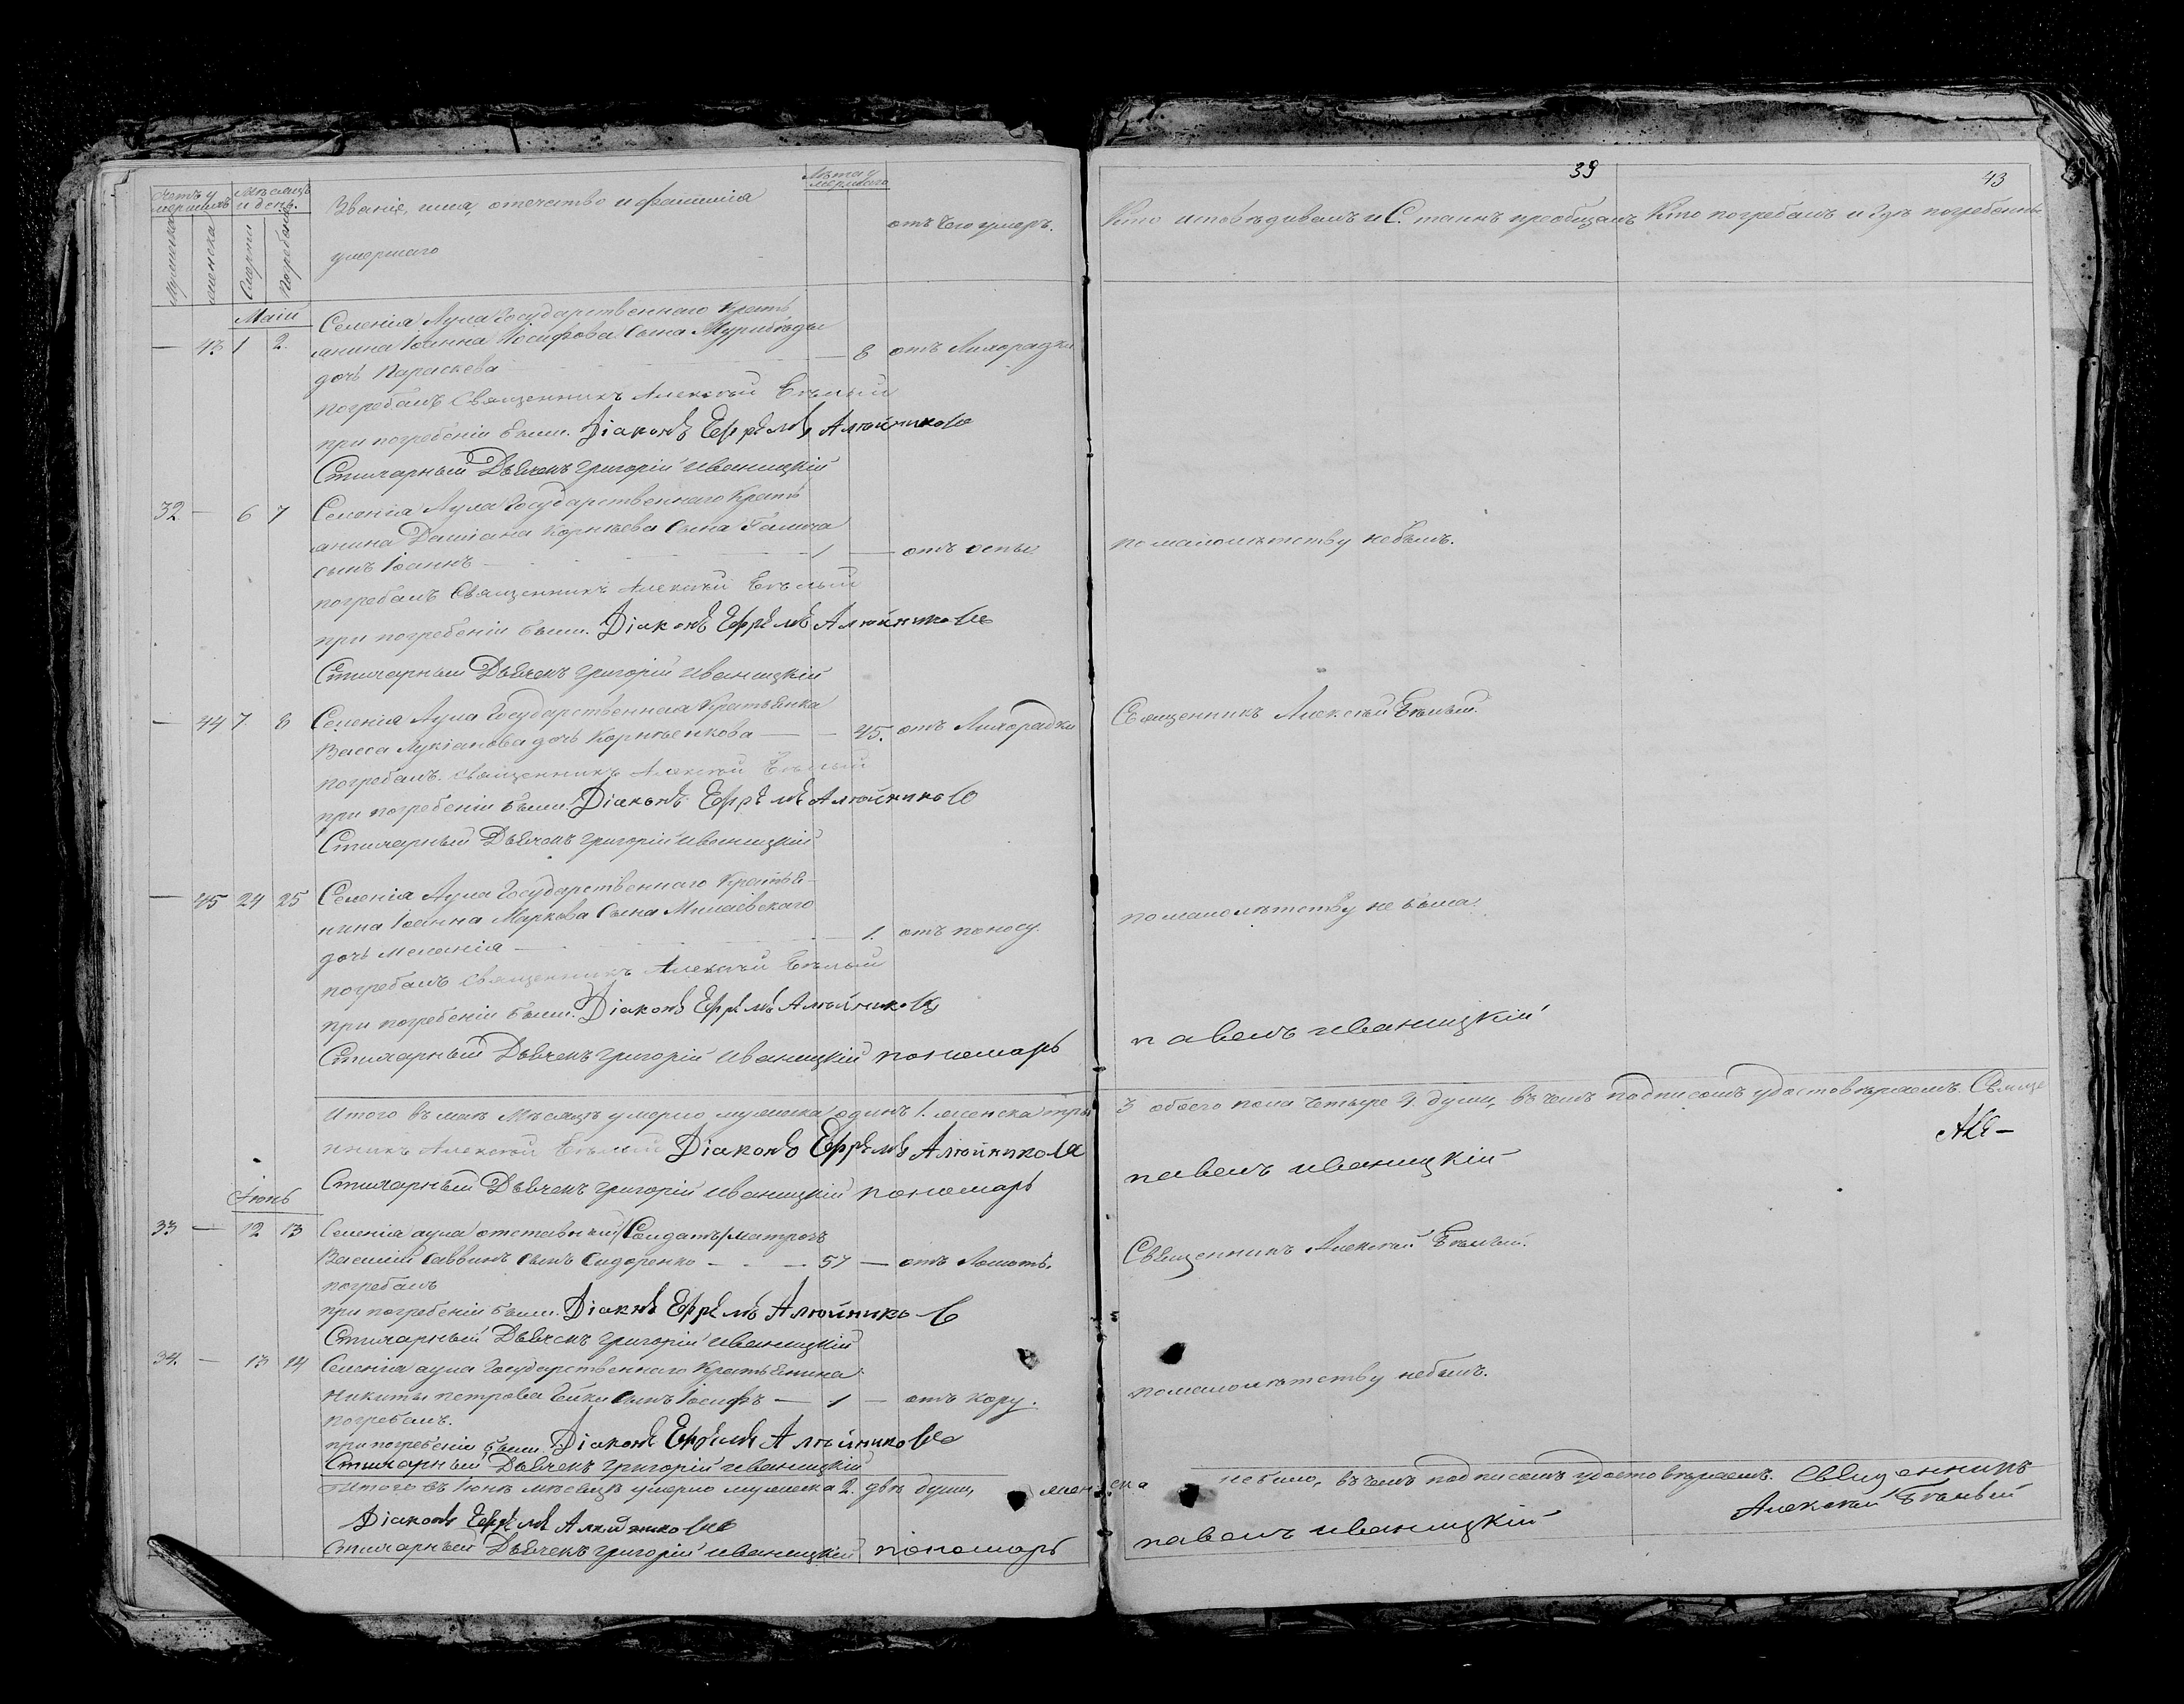 39
43
Счетъ умершихъ
Мѣсяцъ и день.
Званіе, имя, отечество и фамилія
умершаго
Лѣта умершаго
отъ чего умеръ.
Кто исповѣдивалъ и С. таинъ преобщалъ
Кто погребалъ и гдѣ погребенъ
Мужеска
женска
Смерти
Погребенія
Маій
— 43 1 2. Селенія Аула Государственнаго Кресть
янина Іоанна Іосифова сына
дочь Параскева — 8 отъ Лихорадки
погребалъ Священникъ Алексѣй Бѣлый
при погребеніи были. Діаконъ Ефремъ Алюйниковъ
Стихарный Дьячекъ Григорій Иваницкій
32 — 6 7 Селенія Аула Государственнаго Кресть
янина Даміана Корнѣева сына
сынъ Іоаннъ — 1 — отъ оспы по малолѣтству небылъ.
погребалъ Священникъ Алексѣй Бѣлый
при погребеніи были. Діаконъ Ефремъ Алюйниковъ
Стихарный Дьячекъ Григорій Иваницкій
— 44 7. 8 Селенія Аула Государственная Крестьянка
Васса Лукіанова дочь Корніенкова — — 45. отъ Лихорадки Священникъ Алексѣй Бѣлый.
погребалъ. Священникъ Алексѣй Бѣлый
при погребеніи были. Діаконъ Ефремъ Алюйниковъ
Стихарный Дьячекъ Григорій Иваницкій
— 45 24 25 Селенія Аула Государственнаго Крестья-
нина Іоанна Маркова Сына
дочь Меланія — 1. отъ поносу. по малолѣтству не была.
погребалъ Священникъ Алексѣй Бѣлый
при погребеніи были. Діаконъ Ефремъ Алюйниковъ
Стихарный Дьячекъ Григорій Иваницкій пономарь павелъ иваницкій
Итого въ маѣ Мѣсяцѣ умерло мужеска одинъ 1. женска три 3 обоего пола четыре 4. души, въ чемъ подписомъ удостовѣряемъ. Свяще
нникъ Алексѣй Бѣлый Діаконъ Ефремъ Алюйниковъ
Стихарный Дьячекъ Григорій Иваницкій пономарь павелъ иваницкій
Іюнь
33 — 12 13 Селенія аула отставный Солдатъ матрозъ
Василій Саввинъ сынъ Сидоренко — 57 — отъ Ломоть. Священникъ Алексѣй Бѣлый.
погребалъ
при погребеніи были. Діаконъ Ефремъ Алюйниковъ
Стихарный Дьячекъ Григорій Иваницкій
34. — 13 14 Селенія аула Государственнаго Крестьянина
Никиты петрова сынъ Іосифъ — 1 — отъ кору. по малолѣтству небылъ.
погребалъ.
при погребеніи были Діаконъ Ефремъ Алюйниковъ
Стихарный Дьячекъ Григорій Иваницкій
Итого въ Іюнѣ мѣсяцѣ умерло мужеска 2. двѣ души, женска небыло, въ чемъ подписомъ удостовѣряемъ. Священникъ
Алексѣй Бѣлый
Діаконъ Ефремъ Алюйниковъ
Стихарный Дьячекъ Григорій Иваницкій пономарь павелъ иваницкій